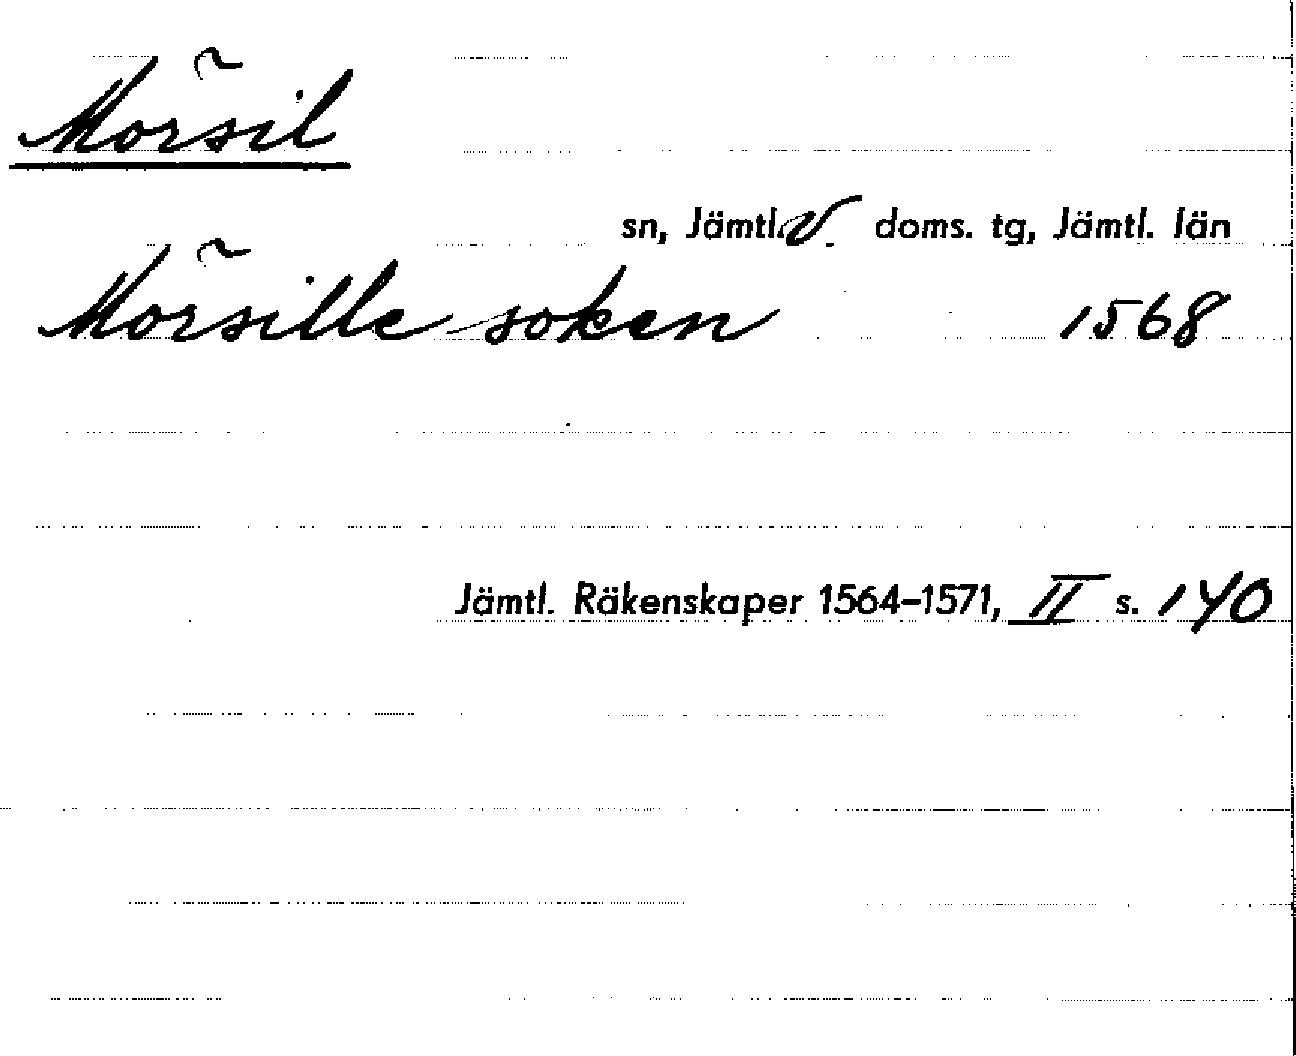 Mörsil
sn, Jämtl. V. doms. tg, Jämtl. län
Mörsille soken 1568
Jämtl. Räkenskaper 1564–1571, II s. 140